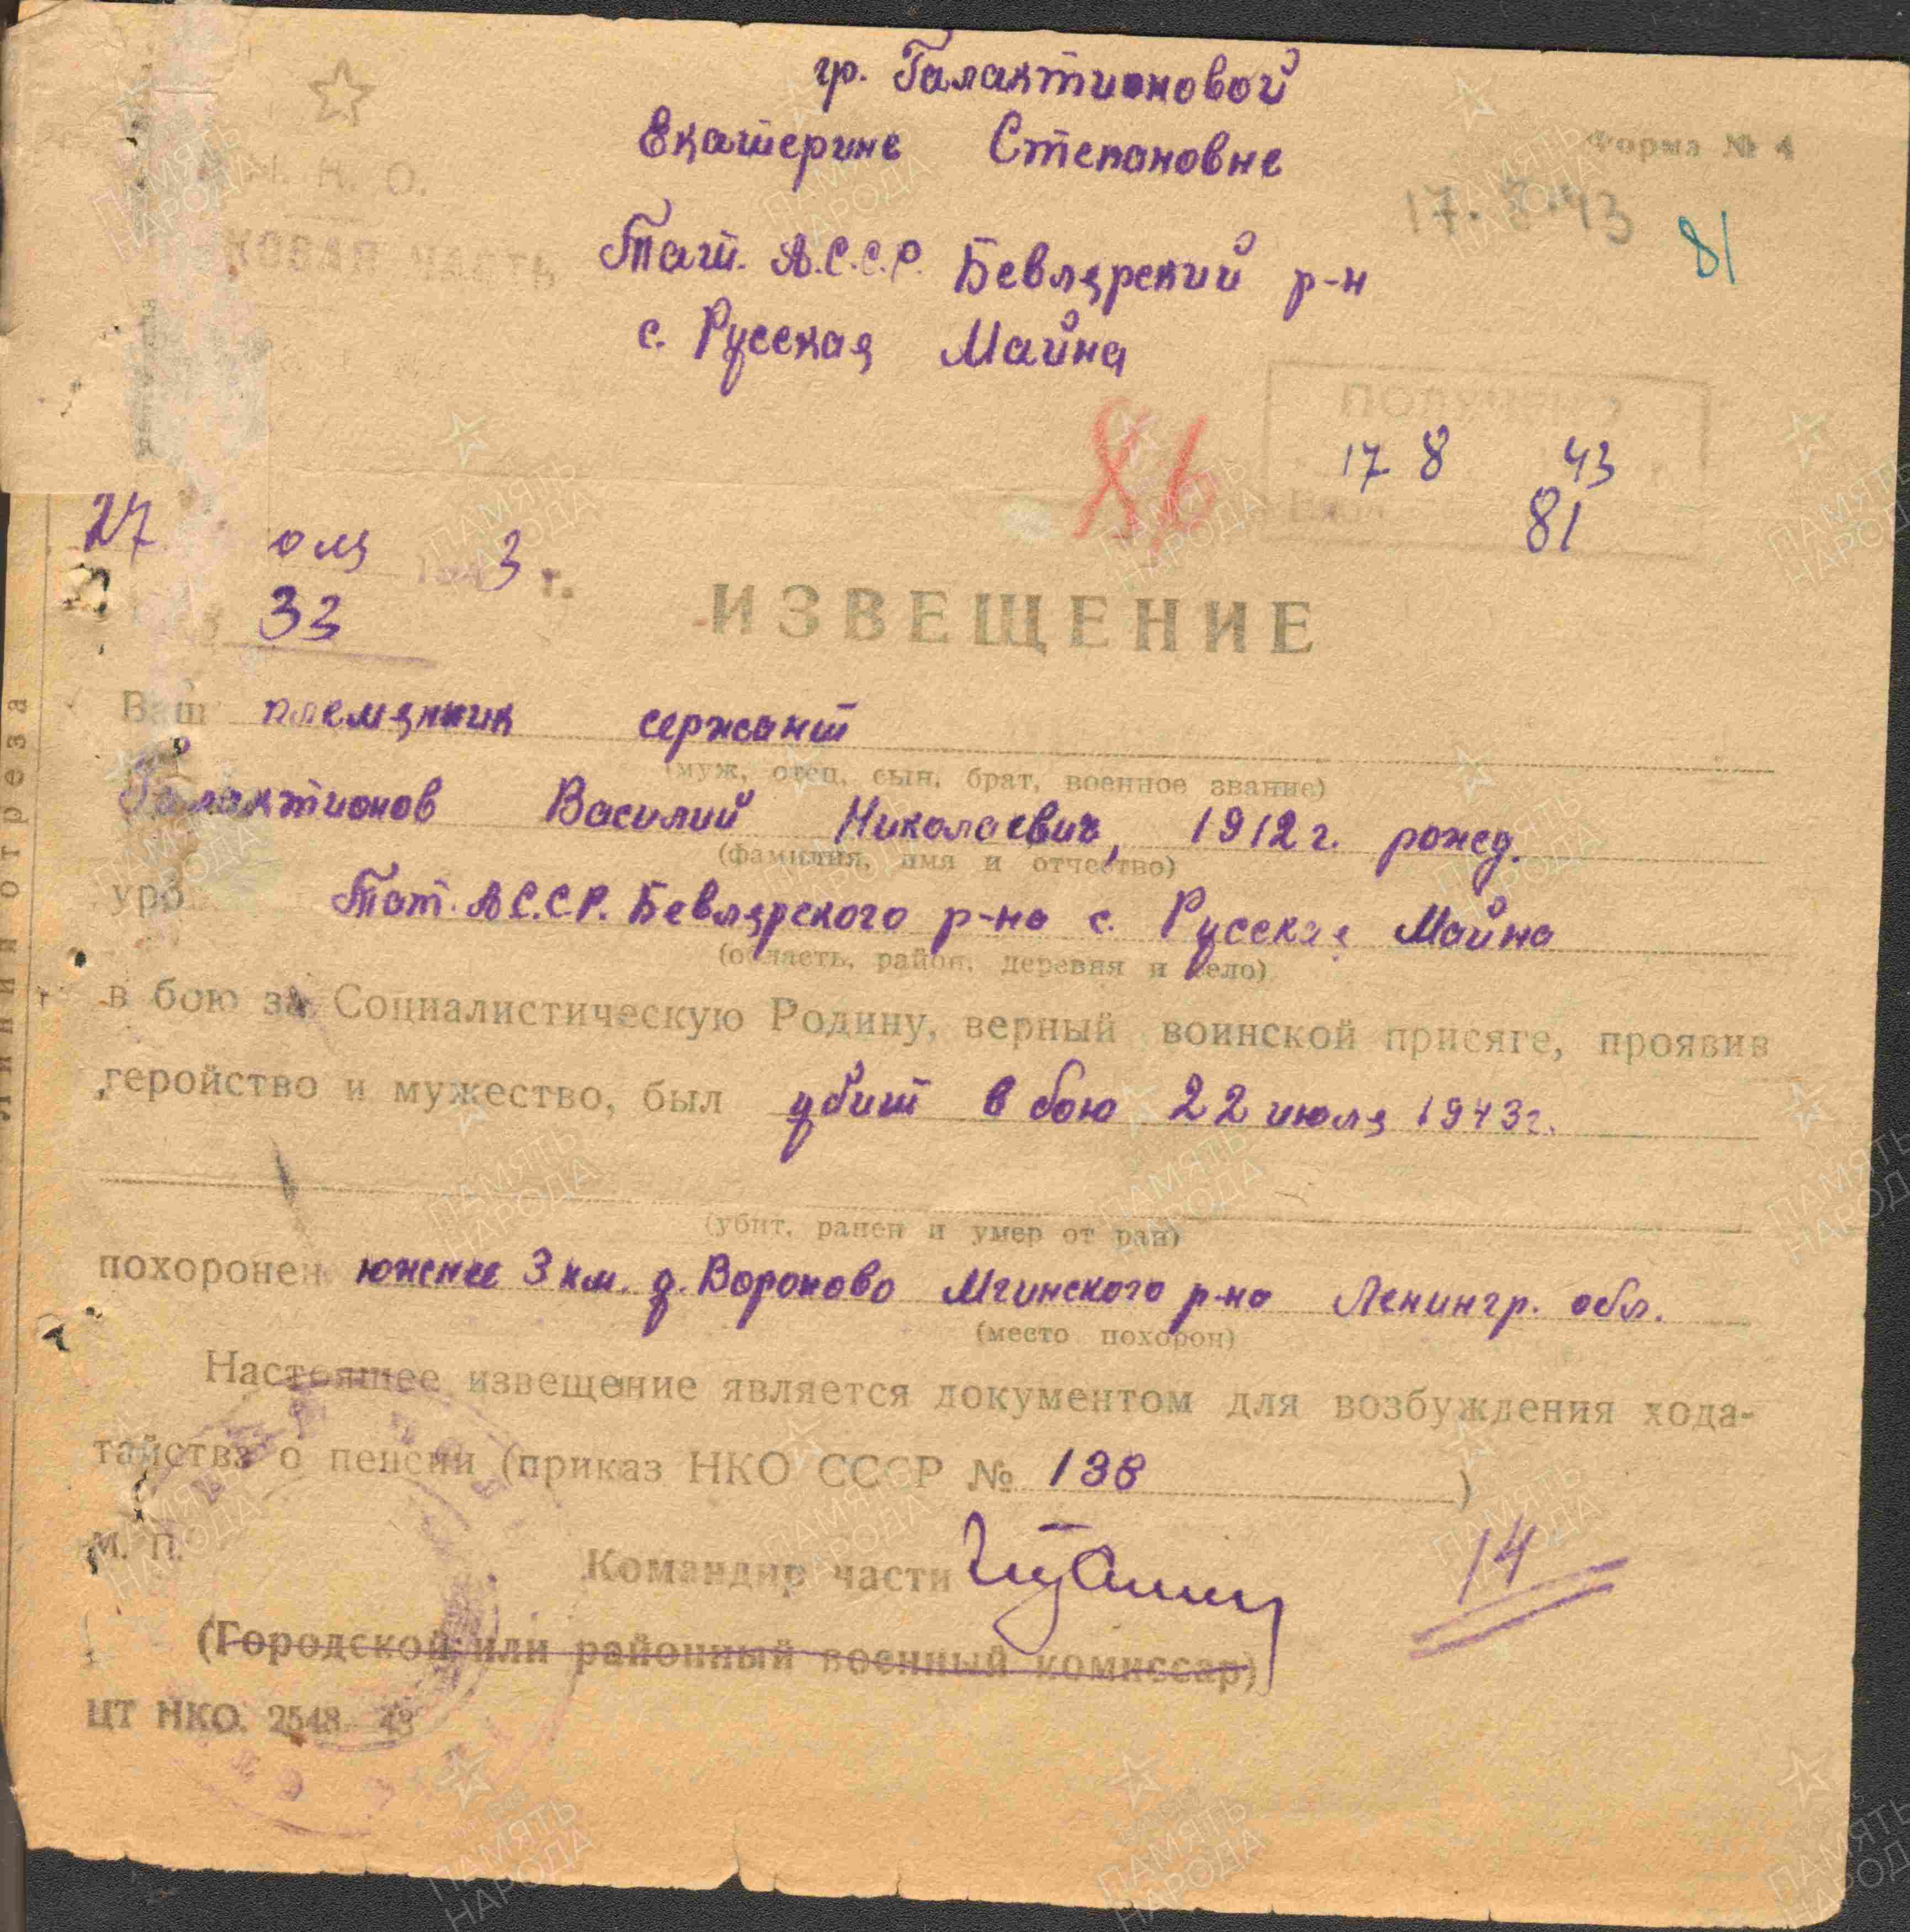 гр. Галактионовой
Екатерине Степановне
Форма № 4
Н. К. О.
17.8.43
81
ЧАСТЬ
Тат. А.С.С.Р. Бевлярский р-н
с. Русская Майна
ПОЛУЧЕНО
17 8 43
81
27 юля 1943 г.
33
ИЗВЕЩЕНИЕ
Ваш племянник сержант
(муж, отец, сын, брат, военное звание)
Галактионов Василий Николаевич, 1912 г. рожд.
(фамилия, имя и отчество)
уро Тат. А.С.С.Р. Бевлярского р-на с. Русская Майна
(область, район, деревня и село)
в бою за Социалистическую Родину, верный воинской присяге, проявив
геройство и мужество, был убит в бою 22 июля 1943г.
(убит, ранен и умер от ран)
похоронен южнее 3 км. д. Вороново Мгинского р-на Ленингр. обл.
(место похорон)
Настоящее извещение является документом для возбуждения хода-
тайства о пенсии (приказ НКО СССР № 138 )
М. П.
Командир части
14
(Городской или районный военный комиссар)
ЦТ НКО. 2548—43
линия отреза
ПАМЯТЬ НАРОДА